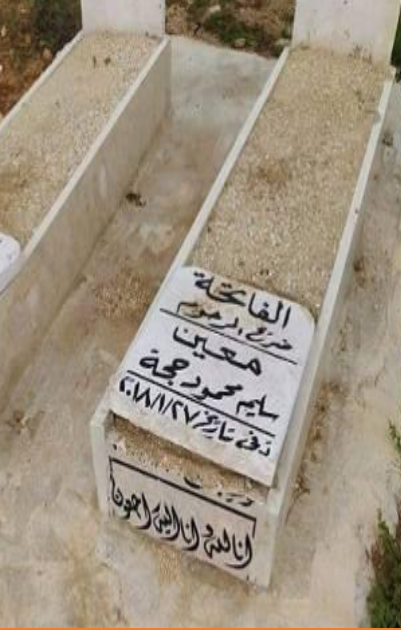 الفاتحة
ضريح المرحوم
معين
سليم محمود حجة
دفن تاريخ ٢٠١٨/١/٢٧
انا لله و انا اليه راجعون